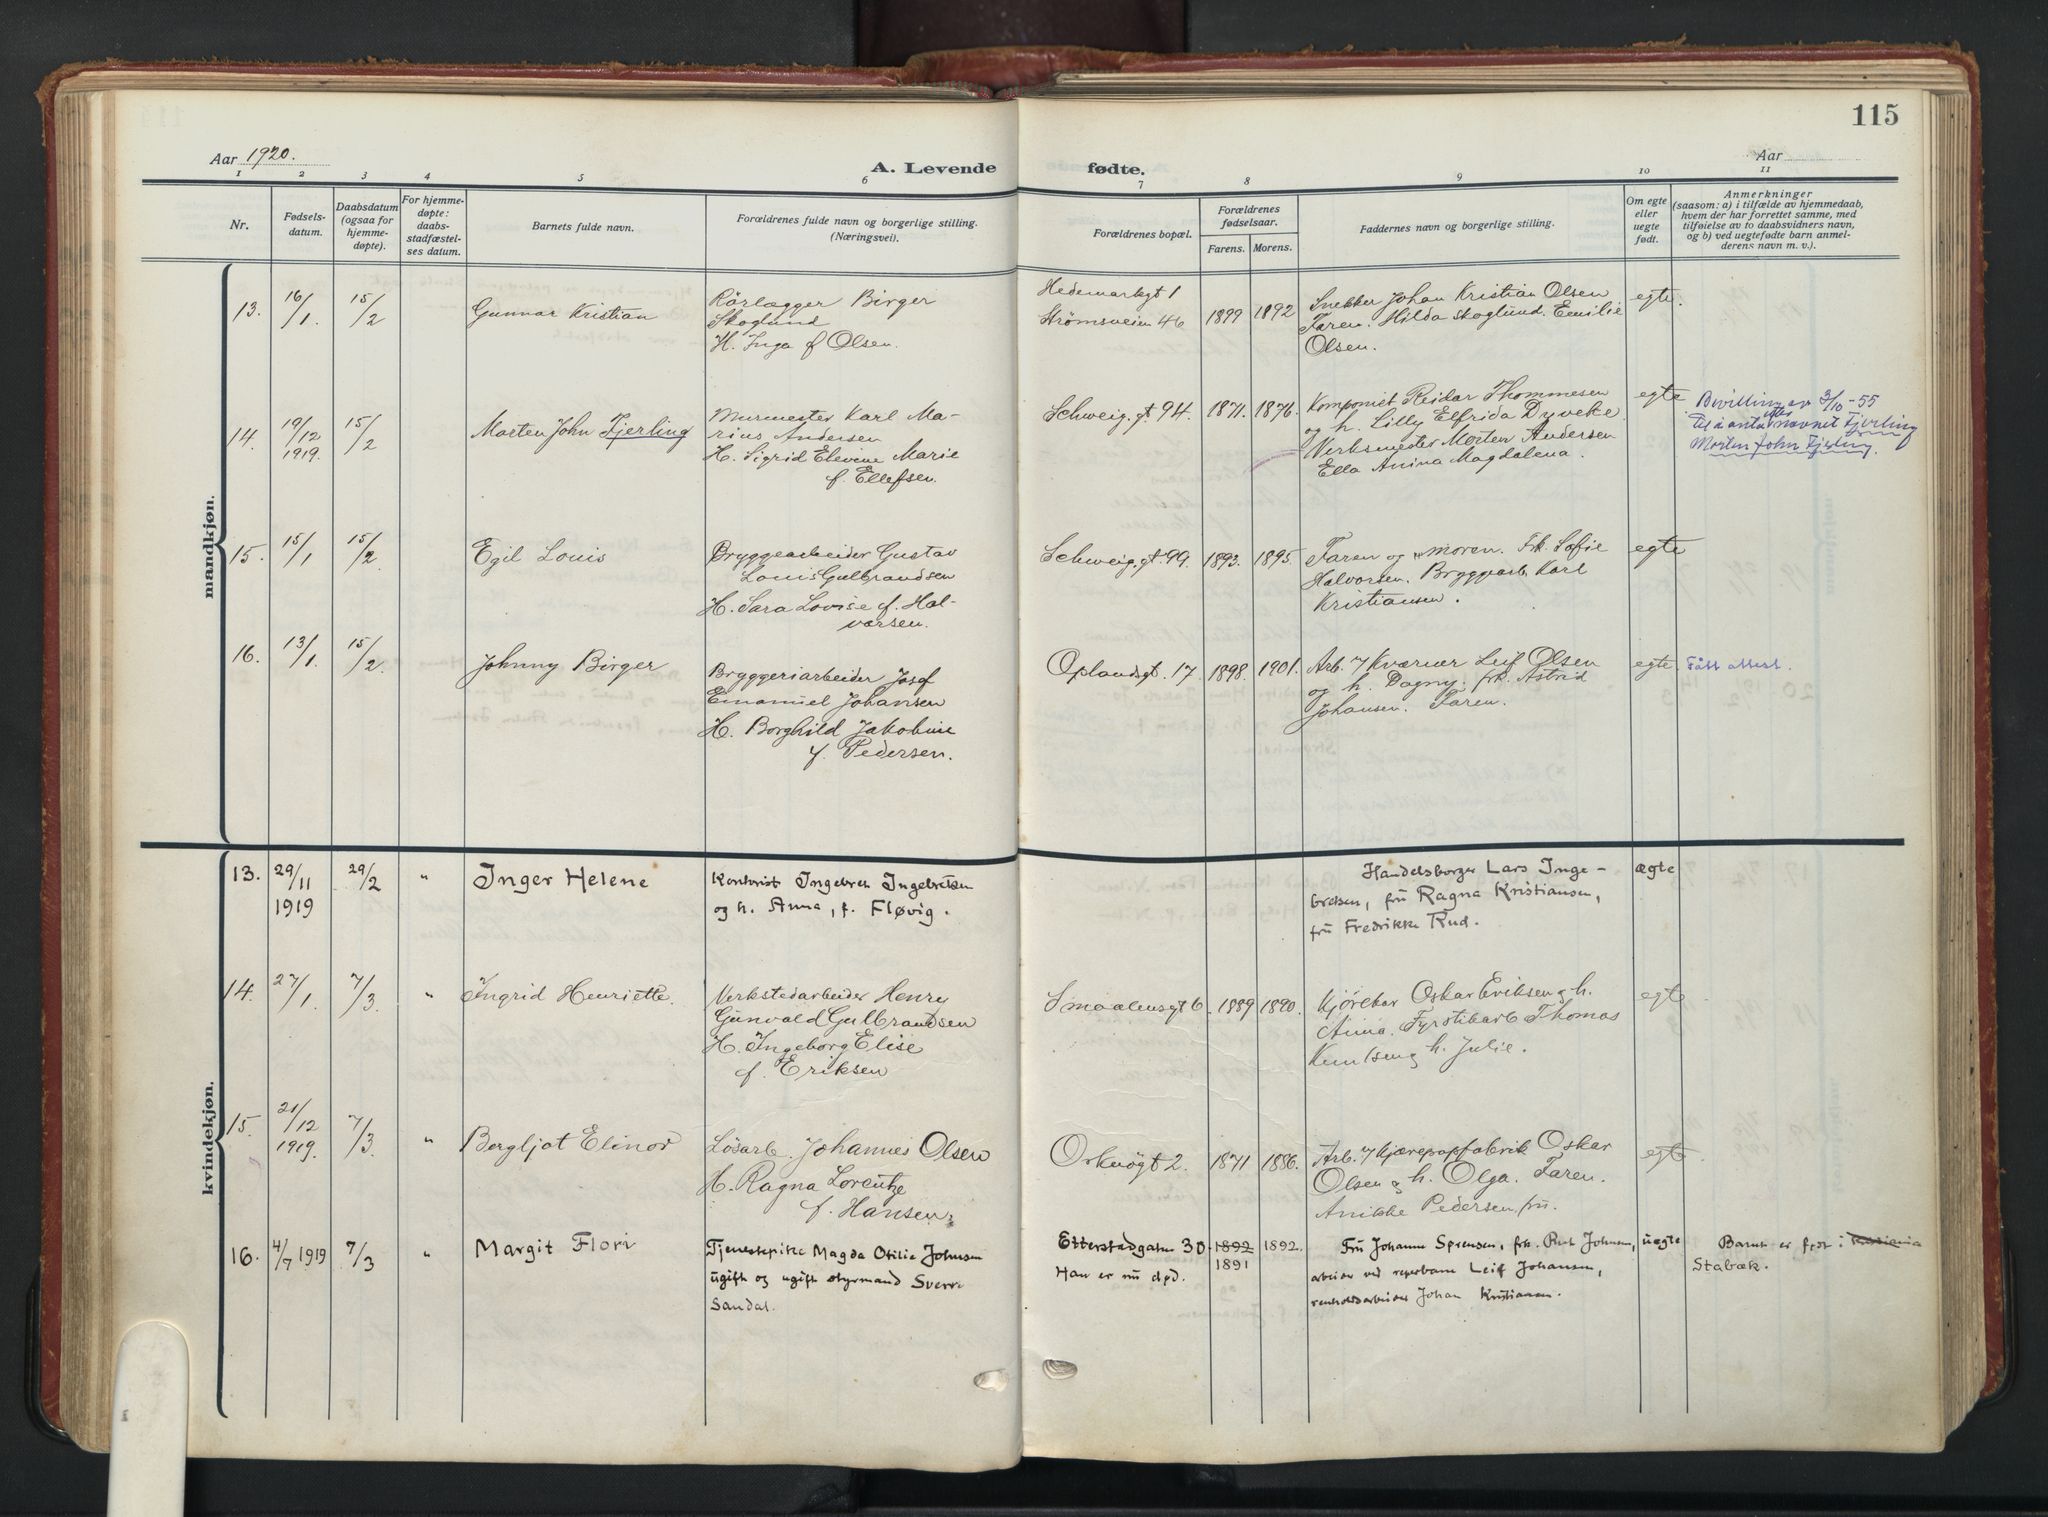 115
Aar 1920.
A. Levende fødte.
Aar
1 2 3 4 5 6 7 8 9 10 11
Nr.
Fødsels-
datum.
Daabsdatum
(ogsaa for
hjemme-
døpte).
For hjemme-
døpte:
daabs-
stadfæstel-
ses datum.
Barnets fulde navn.
Forældrenes fulde navn og borgerlige stilling.
(Næringsvei).
Forældrenes bopæl.
Forældrenes
fødselsaar.
Farens. Morens.
Faddernes navn og borgerlige stilling.
Om egte
eller
uegte
født.
Anmerkninger
(saasom: a) i tilfælde av hjemmedaab,
hvem der har forrettet samme, med
tilføielse av to daabsvidners navn,
og b) ved uegtefødte barn anmel-
derens navn m. v.).
mandkjøn.
13. 16/1. 15/2 Gunnar Kristian
Rörlægger Birger
Skoglund
H. Inga f Olsen.
Hedemarkgt 1
Strømsveien 46
1899 1892
Snekker Johan Kristian Olsen
Faren. Hilda Skoglund. Emilie
Olsen.
egte.
14. 19/12 1919. 15/2 Morten John Fjerling
Murmester Karl Ma-
rius Andersen
H. Sigrid Elevine Marie
f. Ellefsen.
Schweig. gt. 94. 1871. 1876.
Komponist Reidar Thommesen
og h. Lilly Elfrida Dyveke
Verksmester Morten Andersen
Ella Anina Magdalena.
egte
Bevilling av 3/10-55
til å anta navnet Fjerling
Morten John Fjerling.
15. 15/1 15/2. Egil Louis
Bryggearbeider Gustav
Louis Gulbrandsen
H. Sara Lovise f. Hal-
vorsen.
Schweig. gt. 99. 1893. 1895.
Faren og moren. Frk. Sofie
Halvorsen. Bryggearb. Karl
Kristiansen.
egte
16. 13/1. 15/2. Johnny Birger
Bryggeriarbeider Josef
Emanuel Johansen
H. Borghild Jakobine
f. Pedersen.
Oplandsgt. 17. 1898. 1901.
Arb. v/ Kværner Leif Olsen
og h. Dagny. frk. Astrid
Johansen. Faren.
egte. Fått attest.
kvindekjøn.
13. 29/11 1919 29/2 " Inger Helene
Kontorist Ingebret Ingebretsen
og h. Anna, f. Fløvig.
Handelsborger Lars Inge-
bretsen, fru Ragna Kristiansen,
fru Fredrikke Rud.
ægte
14. 27/1. 7/3 " Ingrid Henriette.
Verkstedarbeider Henry
Gunvald Gulbrandsen
H. Ingeborg Elise
f. Eriksen
Smaalensgt 6. 1889 1890.
Kjørekar Oskar Eriksen og h.
Anna. Fyrstikarb Thomas
Knutsen og h. Julie.
egte
15. 21/12 1919. 7/3 " Bergljot Elinor
Løsarb. Johannes Olsen
H. Ragna Lorentze
f. Hansen.
Orknögt 2. 1871 1886.
Arb. v/ Kjærepapfabrik Oskar
Olsen og h. Olga. Faren.
Anikke Pedersen, fru.
egte
16. 4/7 1919 7/3 " Margit Flori
Tjenestepike Magda Otilie Johnsen
ugift og ugift styrmand Sverre
Sandal.
Etterstadgaten 30
Han er nu død.
1892 1892.
1891
Fru Johanne Sørensen, frk. Rut Johnsen,
arbeider ved reperbane Leif Johansen,
renholdsarbeider Johan Kristiansen.
uegte
Barnet er født i Kristiania
Stabæk.